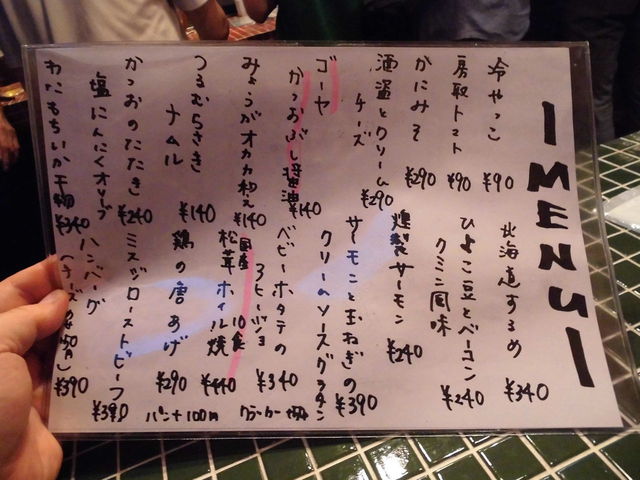 MENU
冷やっこ ¥90
房取トマト ¥90
かにみそ ¥290
酒盗とクリーム
チーズ ¥290
ゴーヤ
かつおぶし醤油 ¥140
みょうがオカカ和え ¥140
つるむらさき
ナムル ¥140
かつおのたたき ¥240
塩にんにくオリーブ
わたもちいか干物 ¥340
北海道するめ ¥340
ひよこ豆とベーコン
クミン風味 ¥240
燻製サーモン ¥240
サーモンと玉ねぎの
クリームソースグラタン ¥390
ベビーホタテの
アヒージョ ¥340
国産
松茸ホイル焼 10食 ¥440
鶏の唐あげ ¥290
ミスジローストビーフ ¥390
ハンバーグ ¥390
パン +100円